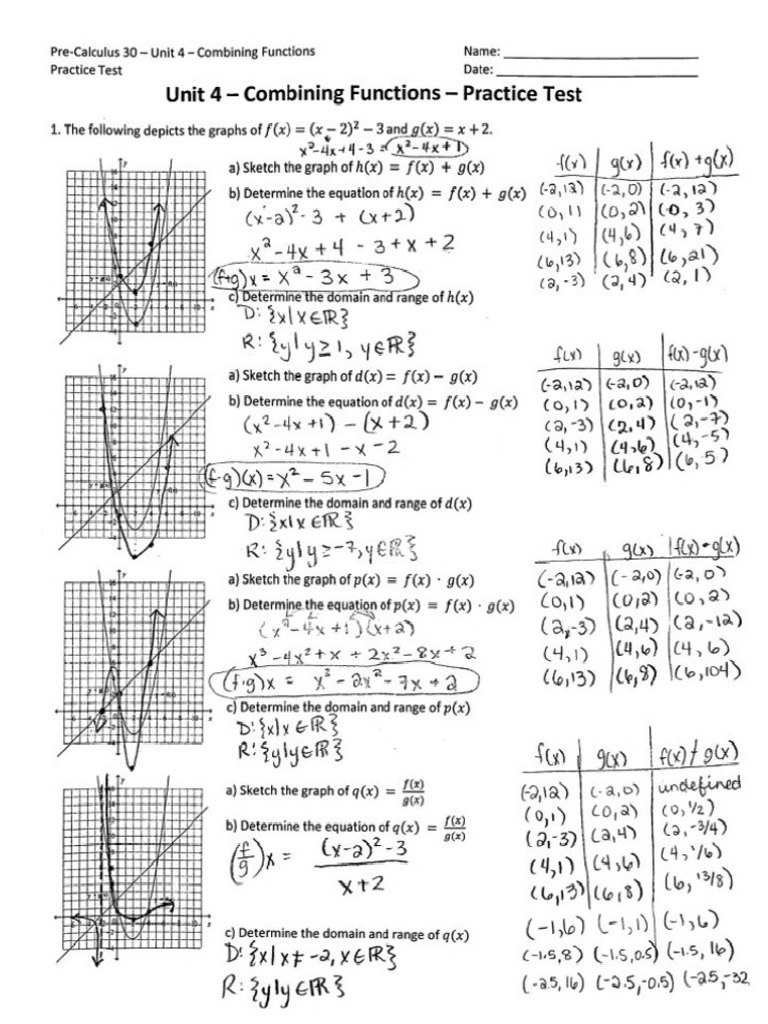 Pre-Calculus 30 – Unit 4 – Combining Functions
Name:
Practice Test
Date:
Unit 4 – Combining Functions – Practice Test
1. The following depicts the graphs of f(x) = (x – 2)² – 3 and g(x) = x + 2.
x²-4x+4-3 = x²-4x+1
a) Sketch the graph of h(x) = f(x) + g(x)
b) Determine the equation of h(x) = f(x) + g(x)
(x-2)²-3 + (x+2)
x²-4x+4 -3+x+2
(f+g)x = x²-3x+3
c) Determine the domain and range of h(x)
D: {x|x∈ℝ}
R: {y|y≥1, y∈ℝ}
f(x) g(x) f(x)+g(x)
(-2,13) (-2,0) (-2,12)
(0,1) (0,2) (0,3)
(4,1) (4,6) (4,7)
(6,13) (6,8) (6,21)
(2,-3) (2,4) (2,1)
a) Sketch the graph of d(x) = f(x) – g(x)
b) Determine the equation of d(x) = f(x) – g(x)
(x²-4x+1) - (x+2)
x²-4x+1-x-2
(f-g)(x) = x²-5x-1
c) Determine the domain and range of d(x)
D: {x|x∈ℝ}
R: {y|y≥-7, y∈ℝ}
f(x) g(x) f(x)-g(x)
(-2,12) (-2,0) (-2,12)
(0,1) (0,2) (0,-1)
(2,-3) (2,4) (2,-7)
(4,1) (4,6) (4,-5)
(6,13) (6,8) (6,5)
a) Sketch the graph of p(x) = f(x) · g(x)
b) Determine the equation of p(x) = f(x) · g(x)
(x²-4x+1)(x+2)
x³-4x²+x+2x²-8x+2
(f·g)x = x³-2x²-7x+2
c) Determine the domain and range of p(x)
D: {x|x∈ℝ}
R: {y|y∈ℝ}
f(x) g(x) f(x)·g(x)
(-2,12) (-2,0) (-2,0)
(0,1) (0,2) (0,2)
(2,-3) (2,4) (2,-12)
(4,1) (4,6) (4,6)
(6,13) (6,8) (6,104)
a) Sketch the graph of q(x) = f(x)/g(x)
b) Determine the equation of q(x) = f(x)/g(x)
(f/g)x = (x-2)²-3
x+2
c) Determine the domain and range of q(x)
D: {x|x≠-2, x∈ℝ}
R: {y|y∈ℝ}
f(x) g(x) f(x)/g(x)
(-2,12) (-2,0) undefined
(0,1) (0,2) (0,1/2)
(2,-3) (2,4) (2,-3/4)
(4,1) (4,6) (4,1/6)
(6,13) (6,8) (6,13/8)
(-1,6) (-1,1) (-1,6)
(-1.5,8) (-1.5,0.5) (-1.5,16)
(-2.5,16) (-2.5,-0.5) (-2.5,-32